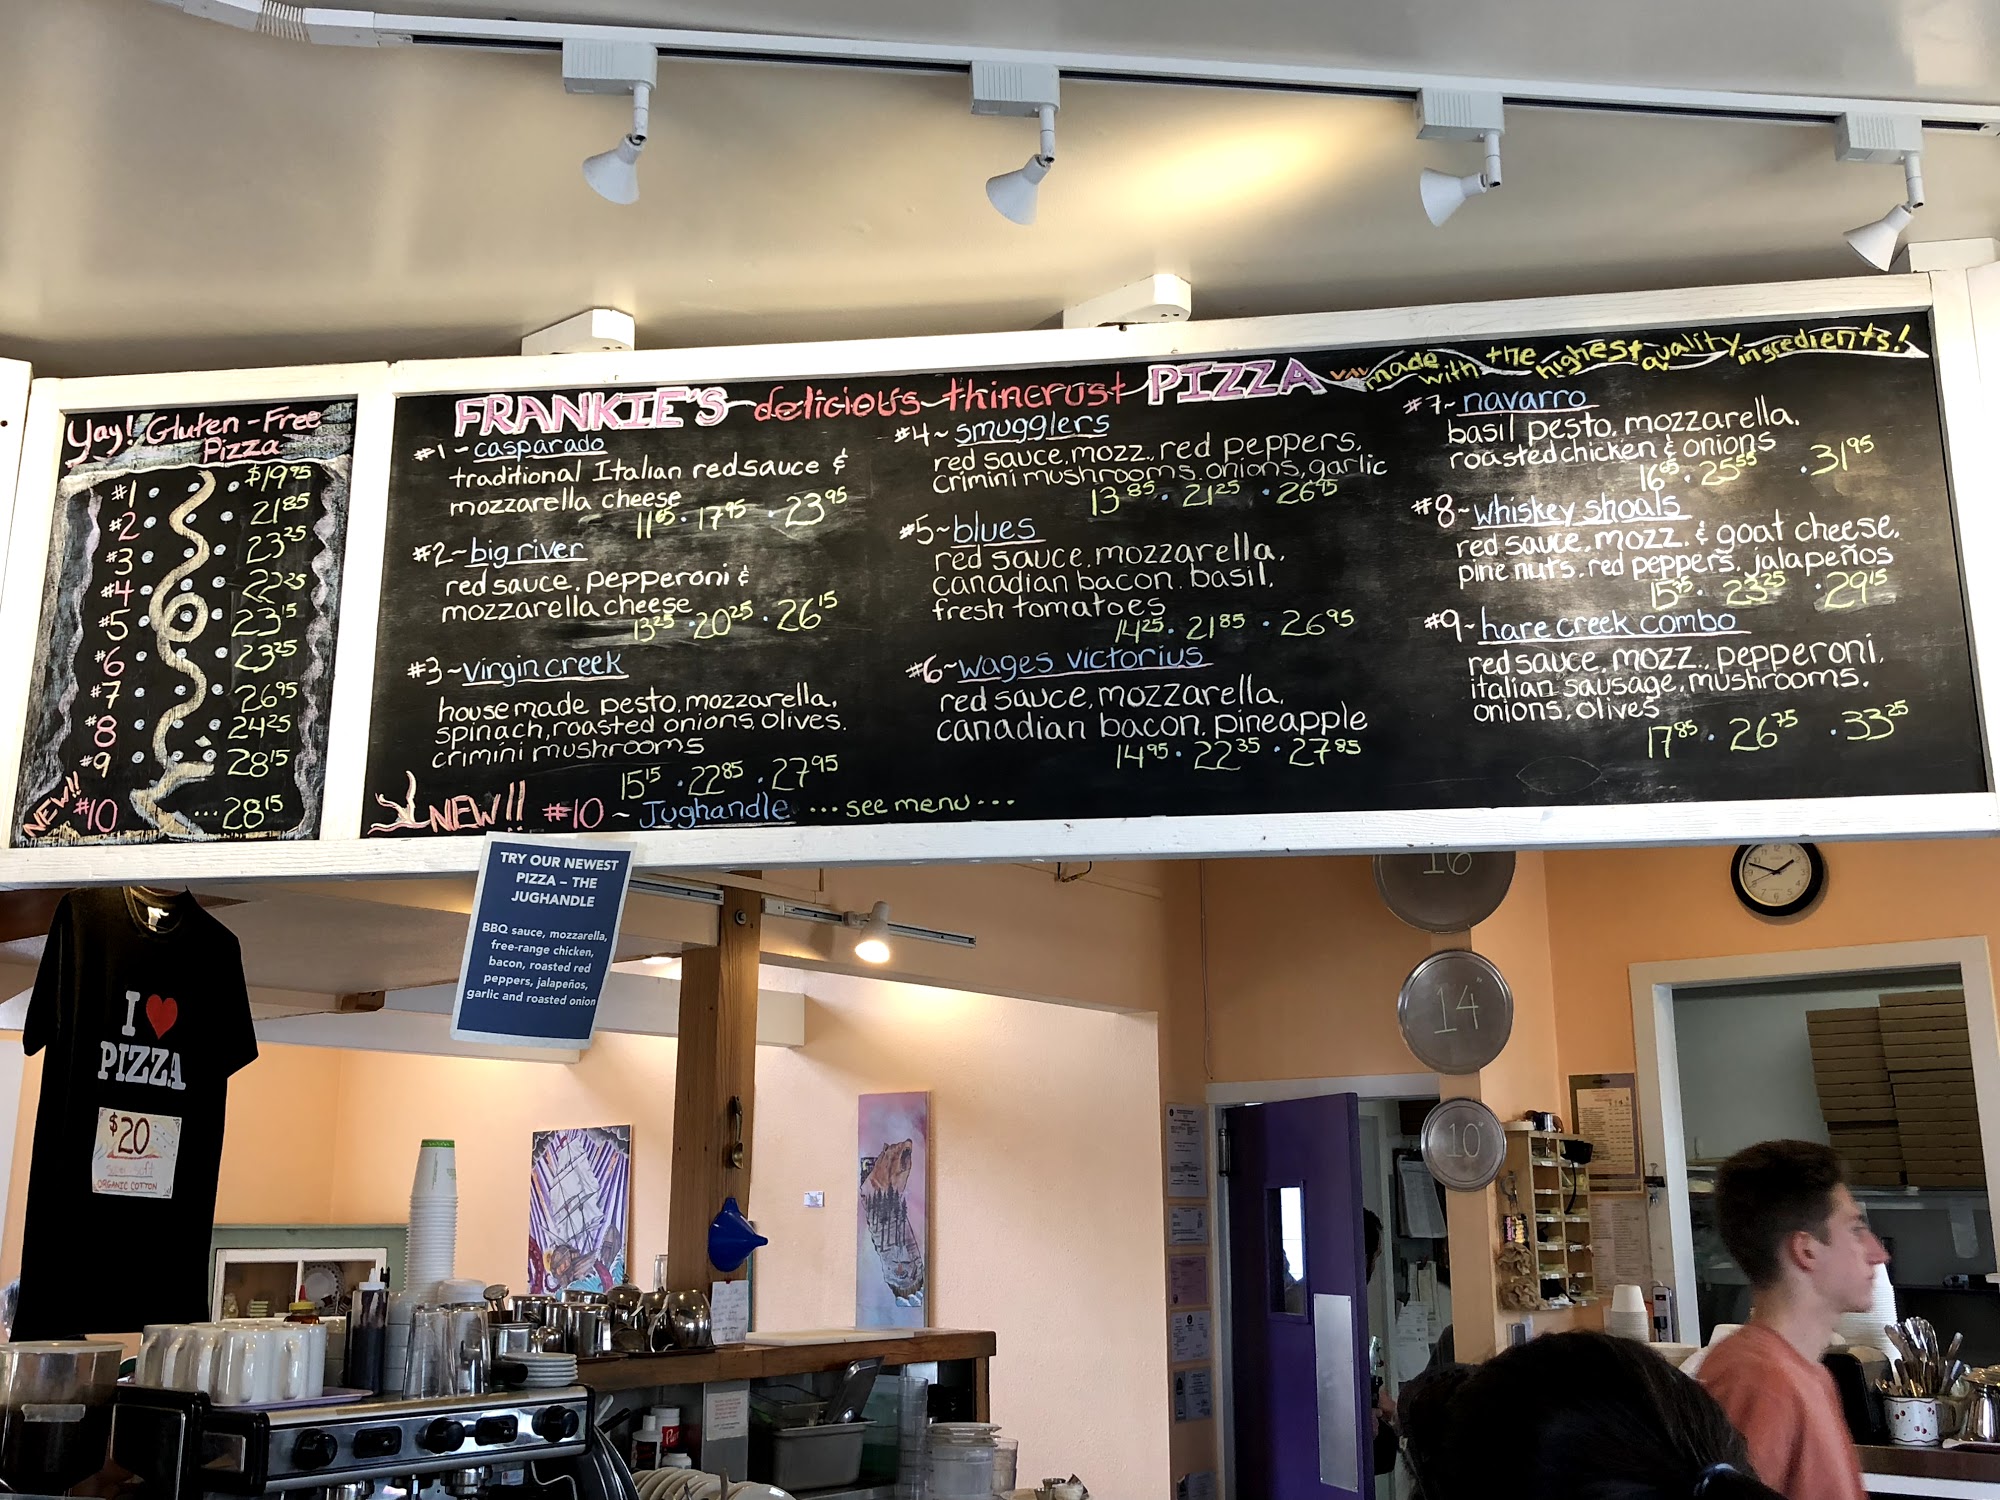 Yay! Gluten-Free
Pizza
#1 $19.95
#2 21.85
#3 23.25
#4 22.25
#5 23.15
#6 23.25
#7 26.95
#8 24.25
#9 28.15
NEW!! #10 ...28.15
FRANKIE'S delicious thincrust PIZZA made with the highest quality ingredients!
#1~casparado
traditional Italian red sauce &
mozzarella cheese
11.65 · 17.95 · 23.95
#2~big river
red sauce, pepperoni &
mozzarella cheese
13.25 · 20.25 · 26.15
#3~Virgin creek
house made pesto, mozzarella,
spinach, roasted onions, olives.
crimini mushrooms
15.15 · 22.85 · 27.95
NEW!! #10 ~ Jughandle ...see menu...
#4~smugglers
red sauce, mozz, red peppers,
crimini mushrooms, onions, garlic
13.85 · 21.25 · 26.45
#5~blues
red sauce, mozzarella,
canadian bacon, basil,
fresh tomatoes
14.25 · 21.85 · 26.95
#6~wages victorius
red sauce, mozzarella,
canadian bacon, pineapple
14.95 · 22.35 · 27.85
#7~navarro
basil pesto, mozzarella,
roasted chicken & onions
16.65 · 25.55 · 31.95
#8~whiskey shoals
red sauce, mozz. & goat cheese,
pine nuts, red peppers, jalapeños
15.35 · 23.25 · 29.15
#9~hare creek combo
red sauce, mozz., pepperoni,
italian sausage, mushrooms,
onions, olives
17.85 · 26.75 · 33.25
TRY OUR NEWEST
PIZZA – THE
JUGHANDLE
BBQ sauce, mozzarella,
free-range chicken,
bacon, roasted red
peppers, jalapeños,
garlic and roasted onion
I ♥
PIZZA
$20
ORGANIC COTTON
16
14"
10"